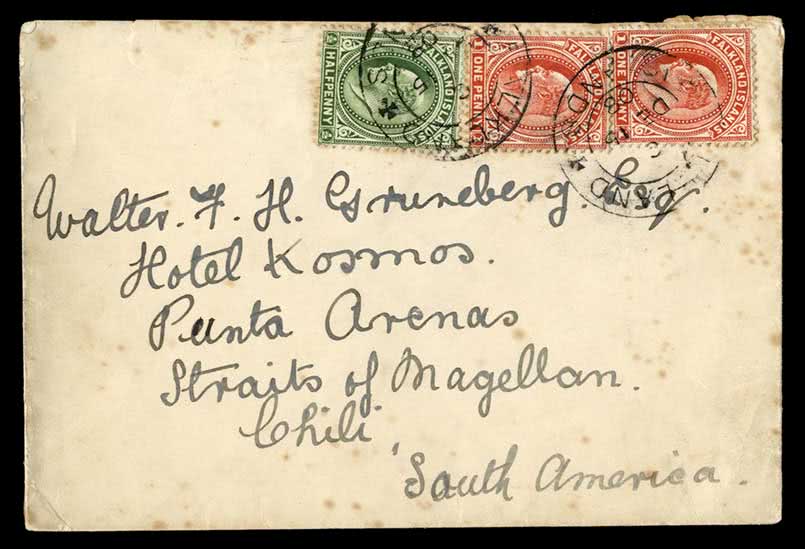 HALFPENNY FALKLAND ISLANDS
ONE PENNY FALKLAND ISLANDS
ONE PENNY FALKLAND ISLANDS
Walter. F. H. Gruneberg. Esq.
Hotel Kosmos.
Punta Arenas
Straits of Magellan.
Chili,
South America.